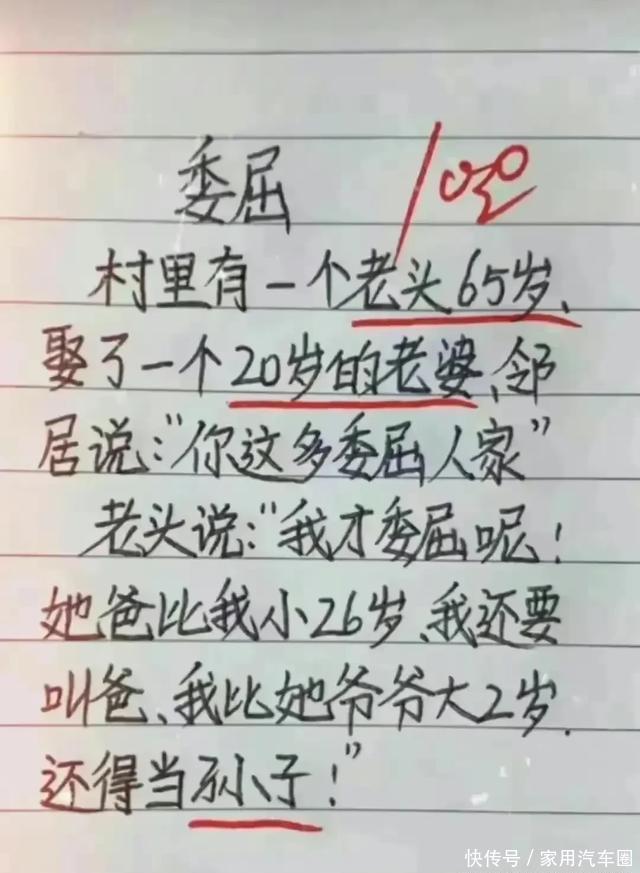 委屈
村里有一个老头65岁、
娶了一个20岁的老婆、邻
居说:"你这多委屈人家"
老头说:"我才委屈呢!
她爸比我小26岁、我还要
叫爸、我比她爷爷大2岁.
还得当孙子!"
快传号/家用汽车圈